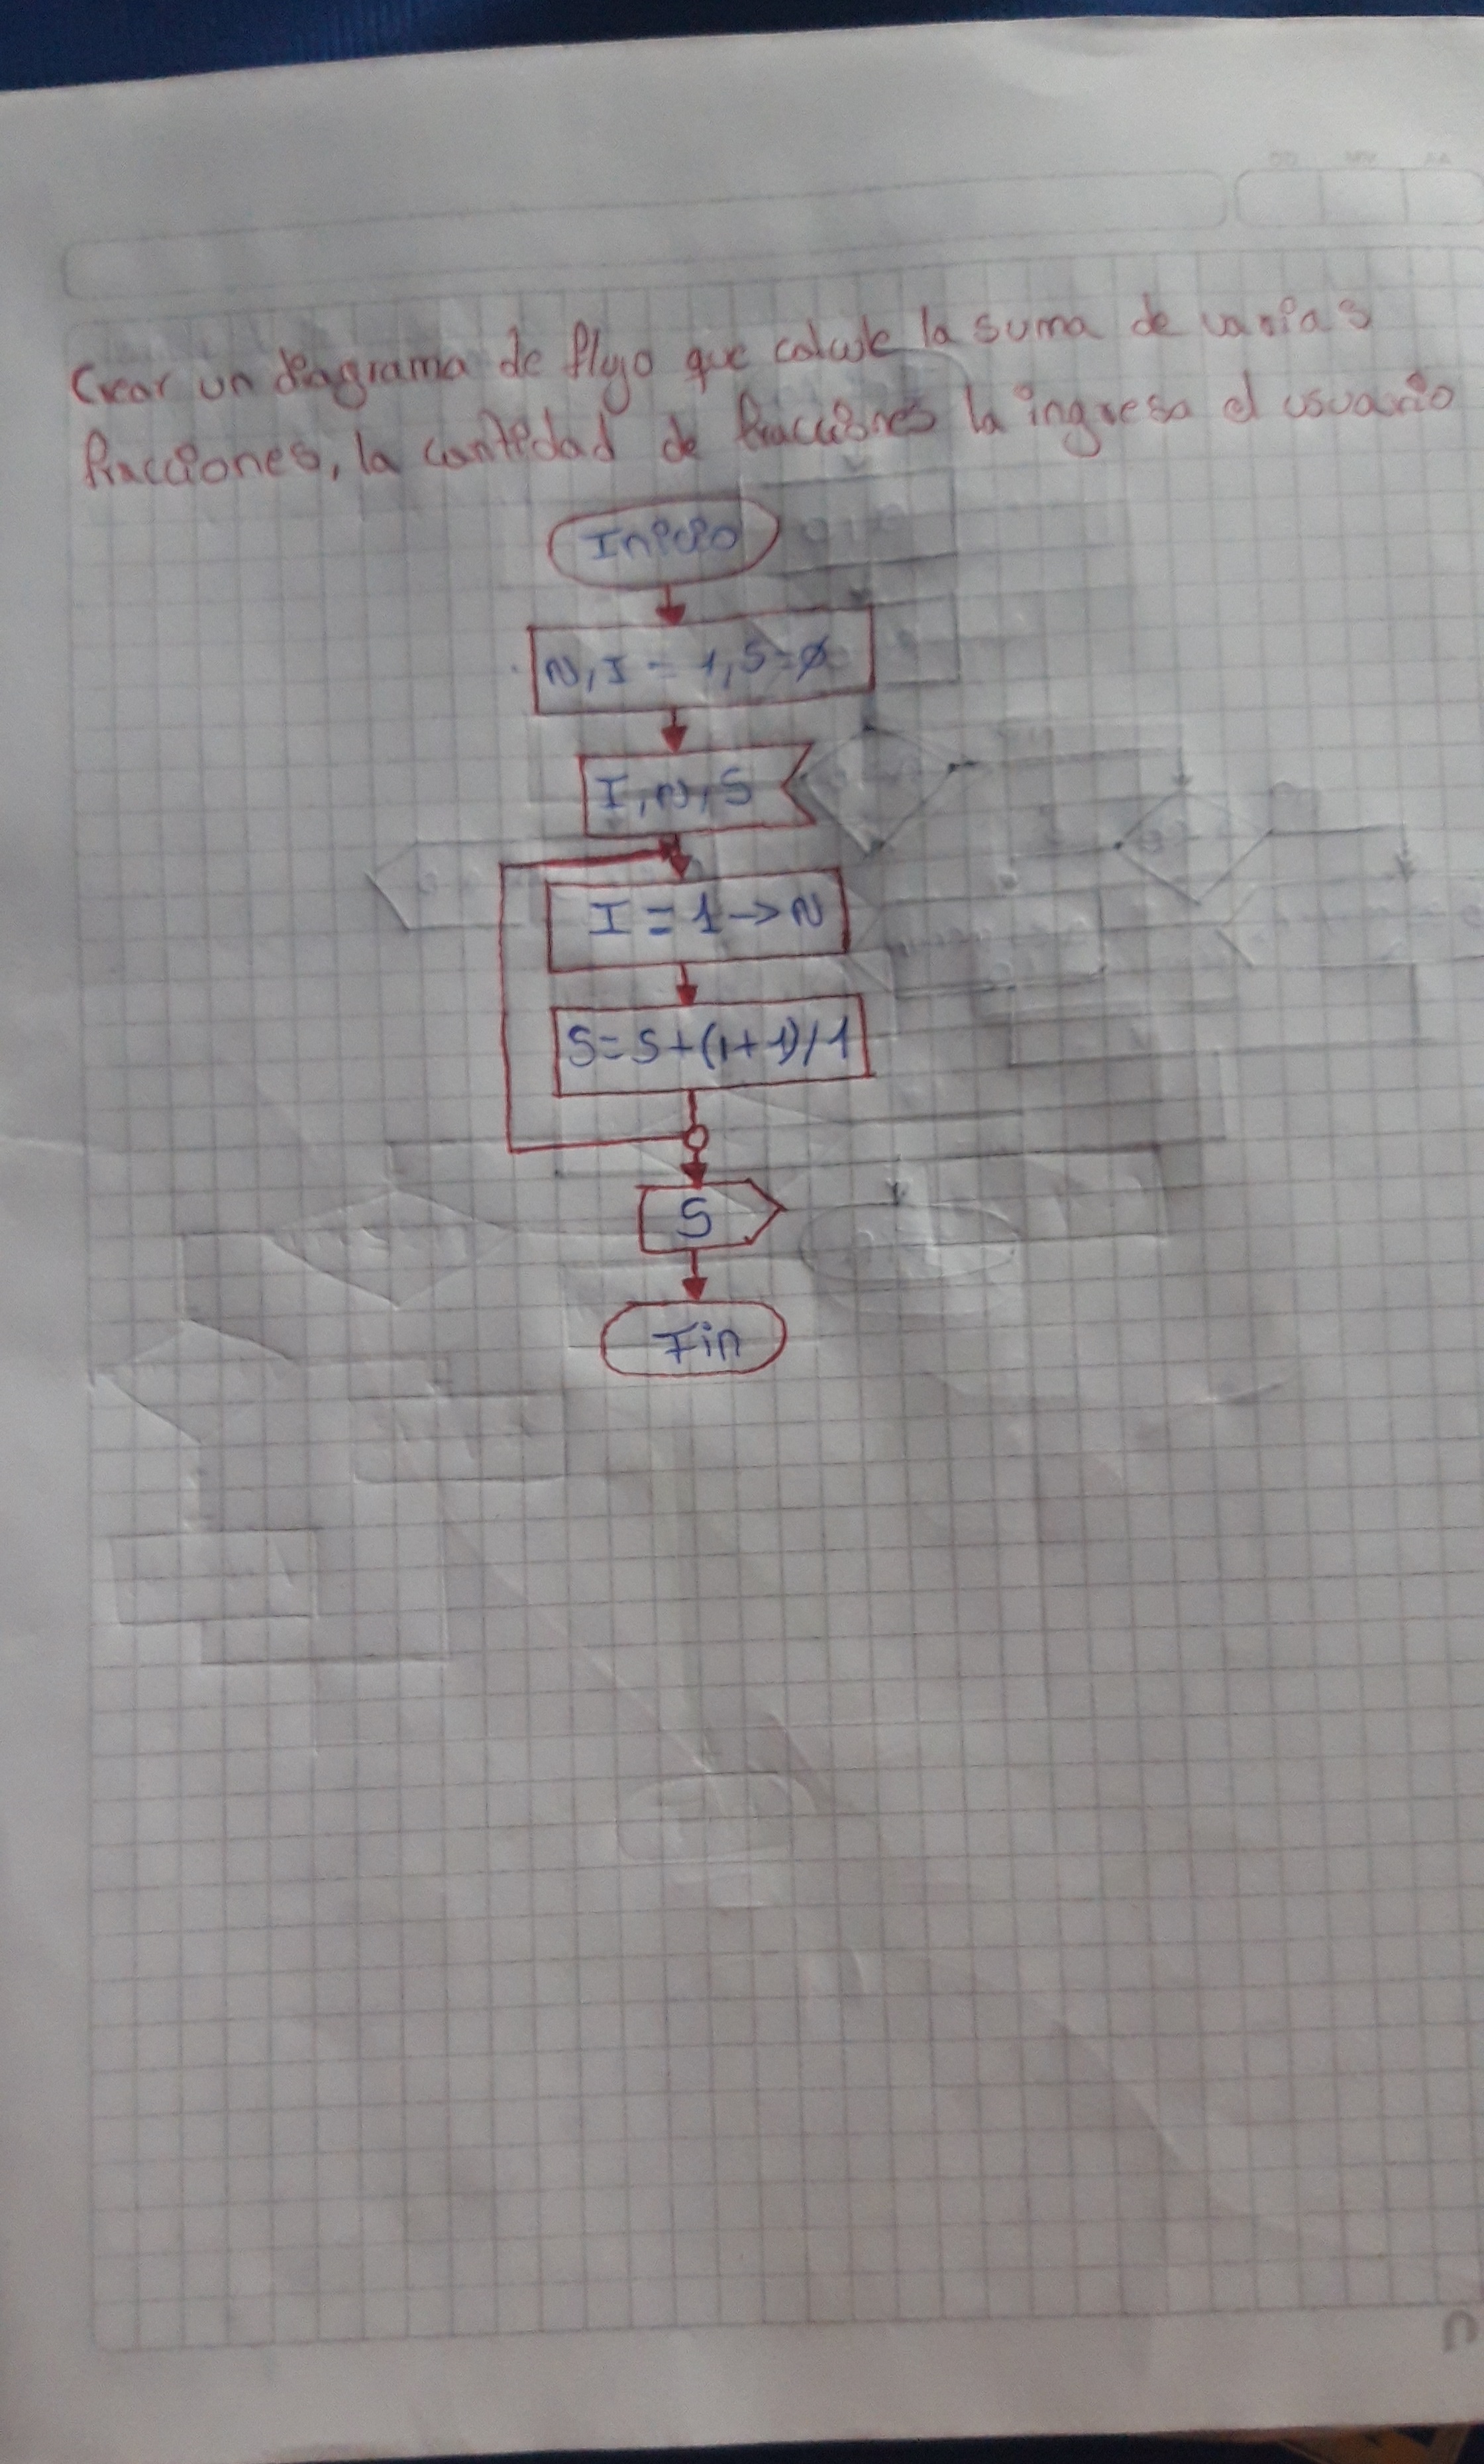 Crear un diagrama de flujo que calcule la suma de varias
fracciones, la cantidad de fracciones la ingresa el usuario
Inicio
N, I = 1, S=Ø
I, N, S
I = 1 → N
S= S+(1+1)/1
S
Fin